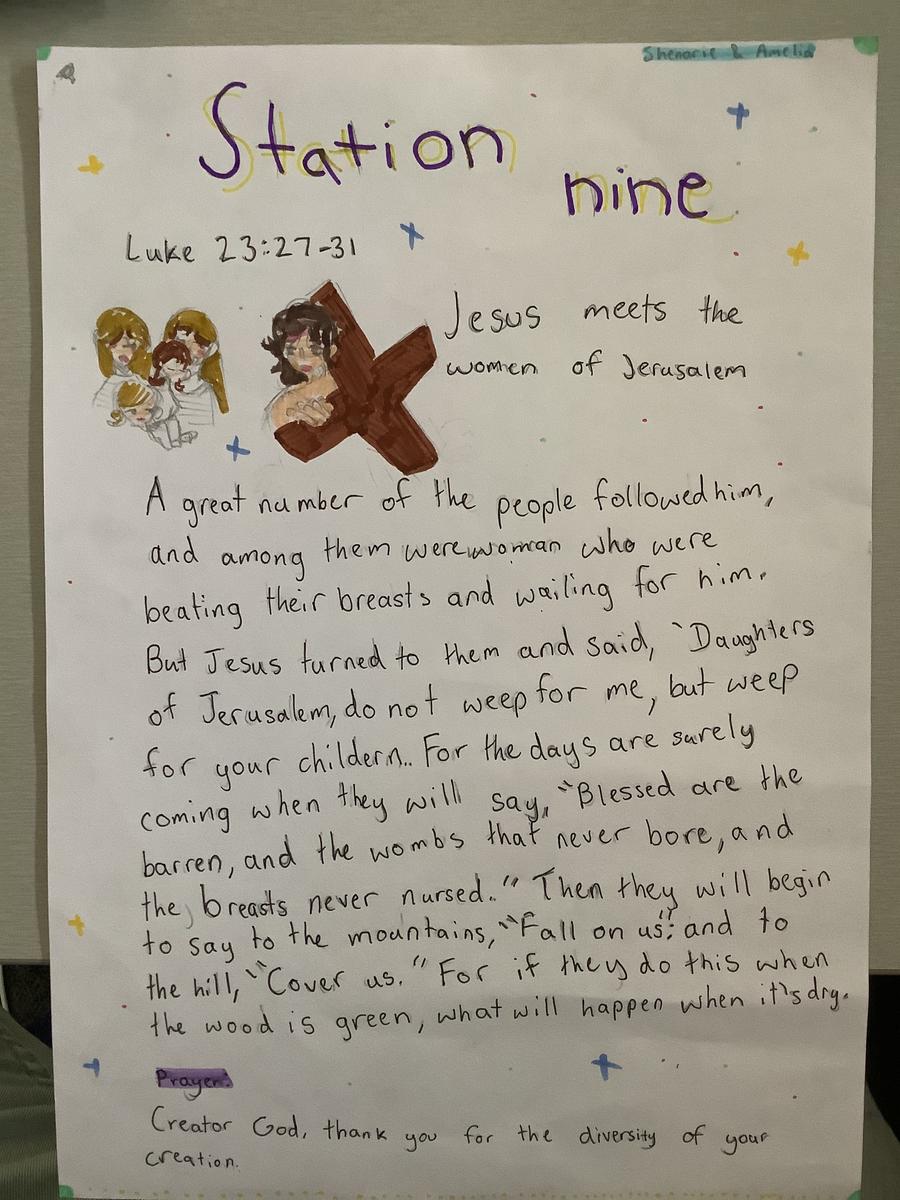 Shenarie & Amelia
Station
nine
Luke 23:27-31
Jesus meets the
women of Jerusalem
A great number of the people followed him,
and among them were woman who were
beating their breasts and wailing for him.
But Jesus turned to them and said, `Daughters
of Jerusalem, do not weep for me, but weep
for your childern.. For the days are surely
coming when they will say, "Blessed are the
barren, and the wombs that never bore, and
the breasts never nursed." Then they will begin
to say to the mountains, "Fall on us"; and to
the hill, "Cover us." For if they do this when
the wood is green, what will happen when it's dry.
Prayer:
Creator God, thank you for the diversity of your
creation.